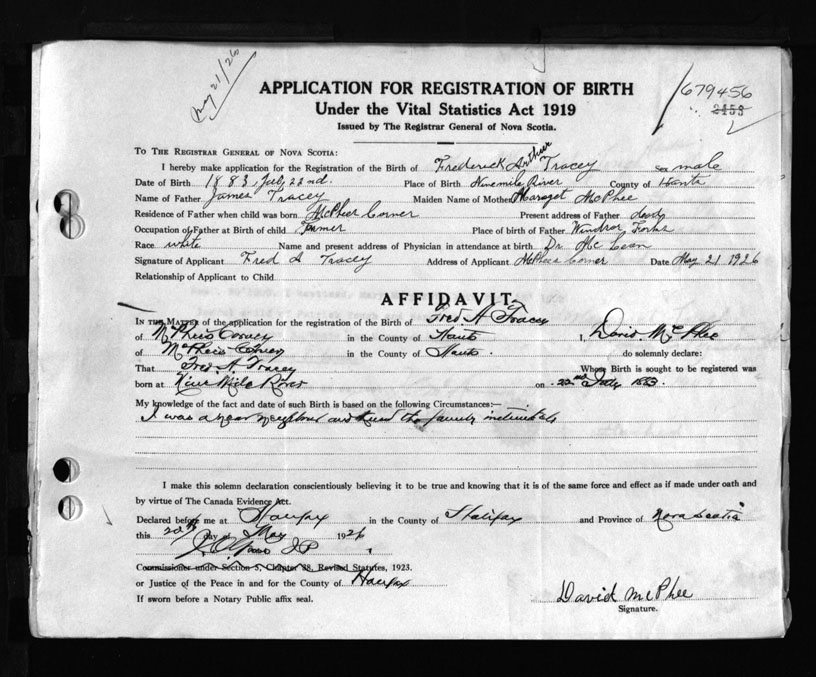 May 21/26
APPLICATION FOR REGISTRATION OF BIRTH
679456
Under the Vital Statistics Act 1919
2453
Issued by The Registrar General of Nova Scotia.
To The Registrar General of Nova Scotia:
I hereby make application for the Registration of the Birth of Frederick Arthur Tracey Sex male
Date of Birth 1883, July 22nd. Place of Birth Ninemile River County of Hants
Name of Father James Tracey Maiden Name of Mother Margaret McPhee
Residence of Father when child was born McPhees Corner Present address of Father dead
Occupation of Father at Birth of child Farmer Place of birth of Father Windsor Forks
Race white Name and present address of Physician in attendance at birth Dr. McLean
Signature of Applicant Fred A Tracey Address of Applicant McPhees Corner Date May 21 1926
Relationship of Applicant to Child
AFFIDAVIT
In the Matter of the application for the registration of the Birth of Fred A Tracey
of McPhees Corner in the County of Hants I, David McPhee
of McPhees Corner in the County of Hants. do solemnly declare:
That Fred. A. Tracey Whose Birth is sought to be registered was
born at Nine Mile River on 22nd July 1883.
My knowledge of the fact and date of such Birth is based on the following Circumstances:—
I was a near neighbor and the family intimately
I make this solemn declaration conscientiously believing it to be true and knowing that it is of the same force and effect as if made under oath and
by virtue of The Canada Evidence Act.
Declared before me at Halifax in the County of Halifax and Province of Nova Scotia
this day of May 1926
JP
Commissioner under Section 5, Chapter 38, Revised Statutes, 1923.
or Justice of the Peace in and for the County of Halifax
If sworn before a Notary Public affix seal.
David McPhee
Signature.